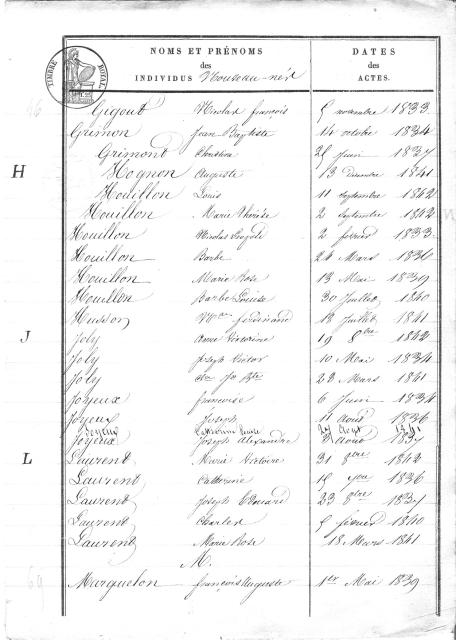 TIMBRE ROYAL
NOMS ET PRÉNOMS DATES
des des
INDIVIDUS Nouveau-nés ACTES.
Gigout Nicolas françois 5 novembre 1833
Grimon Jean Baptiste 14 octobre 1834
Grimont Christine 25 Juin 1837
H Hognon Auguste 13 Décembre 1841
Houillon Louis 11 Septembre 1842
Houillon Marie Thérèse 2 Septembre 1842
Houillon Nicolas 2 février 1833
Houillon Barbe 24 Mars 1836
Houillon Marie Rose 13 Mai 1839
Houillon Barbe Louise 30 Juillet 1840
Husson ferdinand 18 Juillet 1841
J Joly Anne 19 8bre 1842
Joly Joseph Victor 10 Mai 1834
Joly Jn Bte 23 Mars 1841
Joyeux françoise 6 Juin 1834
Joyeux Joseph 11 Août 1836
Joyeux Catherine 24 Aout 1841
Joyeux Joseph Alexandre Aout 1837
L Laurent Marie Victoire 31 8bre 1842
Laurent Catherine 15 1836
Laurent Joseph Edouard 23 8bre 1837
Laurent Charles 5 février 1840
Laurent Marie Rose 18 Mars 1841
M.
Marqueton françois Auguste 1er Mai 1839